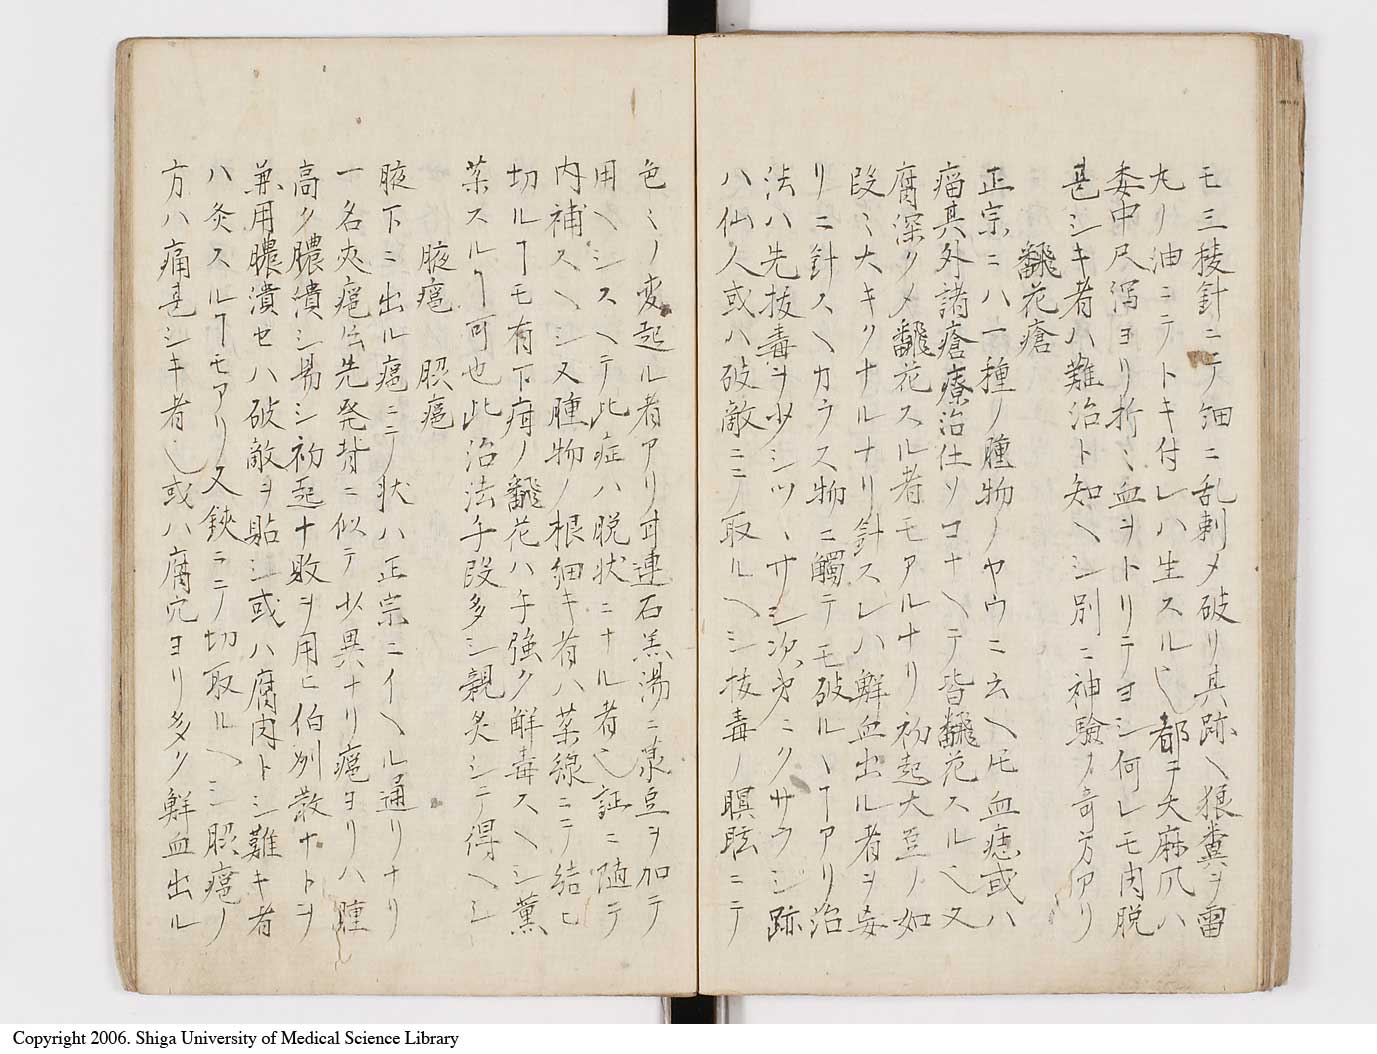 モ三稜針ニテ細ニ乱刺メ破リ其跡ヘ狼糞ヲ雷
丸リ油ニテトキ付レハ生スル也都テ大麻爪ハ
委中尺沢ヨリ折〻血ヲトリテヨシ何レモ肉脱
甚シキ者ハ難治ト知ヘシ別ニ神験ノ奇方アリ
飜花瘡
正宗ニハ一種ノ腫物ノヤウニ云ヘ𪜈血痣或ハ
瘤其外諸瘡療治仕ソコナヘテ皆飜花スル也又
腐深クメ飜花スル者モアルナリ初起大豆ノ如
段〻大キクナルナリ針スレハ鮮血出ル者ヲ妄
リニ針スヘカラス物ニ觸テモ破ルヽヿアリ治
法ハ先抜毒ヲ少シツヽサシ次第ニクサウシ跡
ハ仙人或ハ破敵ニテ取ルヘシ抜毒ノ瞑眩ニテ
色〻ノ変起ル者アリ甘連石羔湯ニ菉豆ヲ加テ
用ヘシスヘテ此症ハ脱状ニナル者也証ニ随テ
内補スヘシ又腫物ノ根細キ者ハ薬線ニテ結ヒ
切ルヿモ有下疳ノ飜花ハ手強ク解毒スヘシ薫
薬スルヿ可也此治法手段多シ親炙シテ得ヘシ
腋瘟 脵瘟
腋下ニ出ル瘟ニテ状ハ正宗ニイヘル通リナリ
一名夾瘟ト云先発背ニ似テ少異ナリ瘟ヨリハ腫
高ク膿潰シ易シ初起十敗ヲ用ヒ伯州散ナトヲ
兼用膿潰セハ破敵ヲ貼シ或ハ腐肉トシ難キ者
ハ灸スルヿモアリ又鋏ニテ切取ルヘシ脵瘟ノ
方ハ痛甚シキ者也或ハ腐穴ヨリ多ク鮮血出ル
Copyright 2006. Shiga University of Medical Science Library